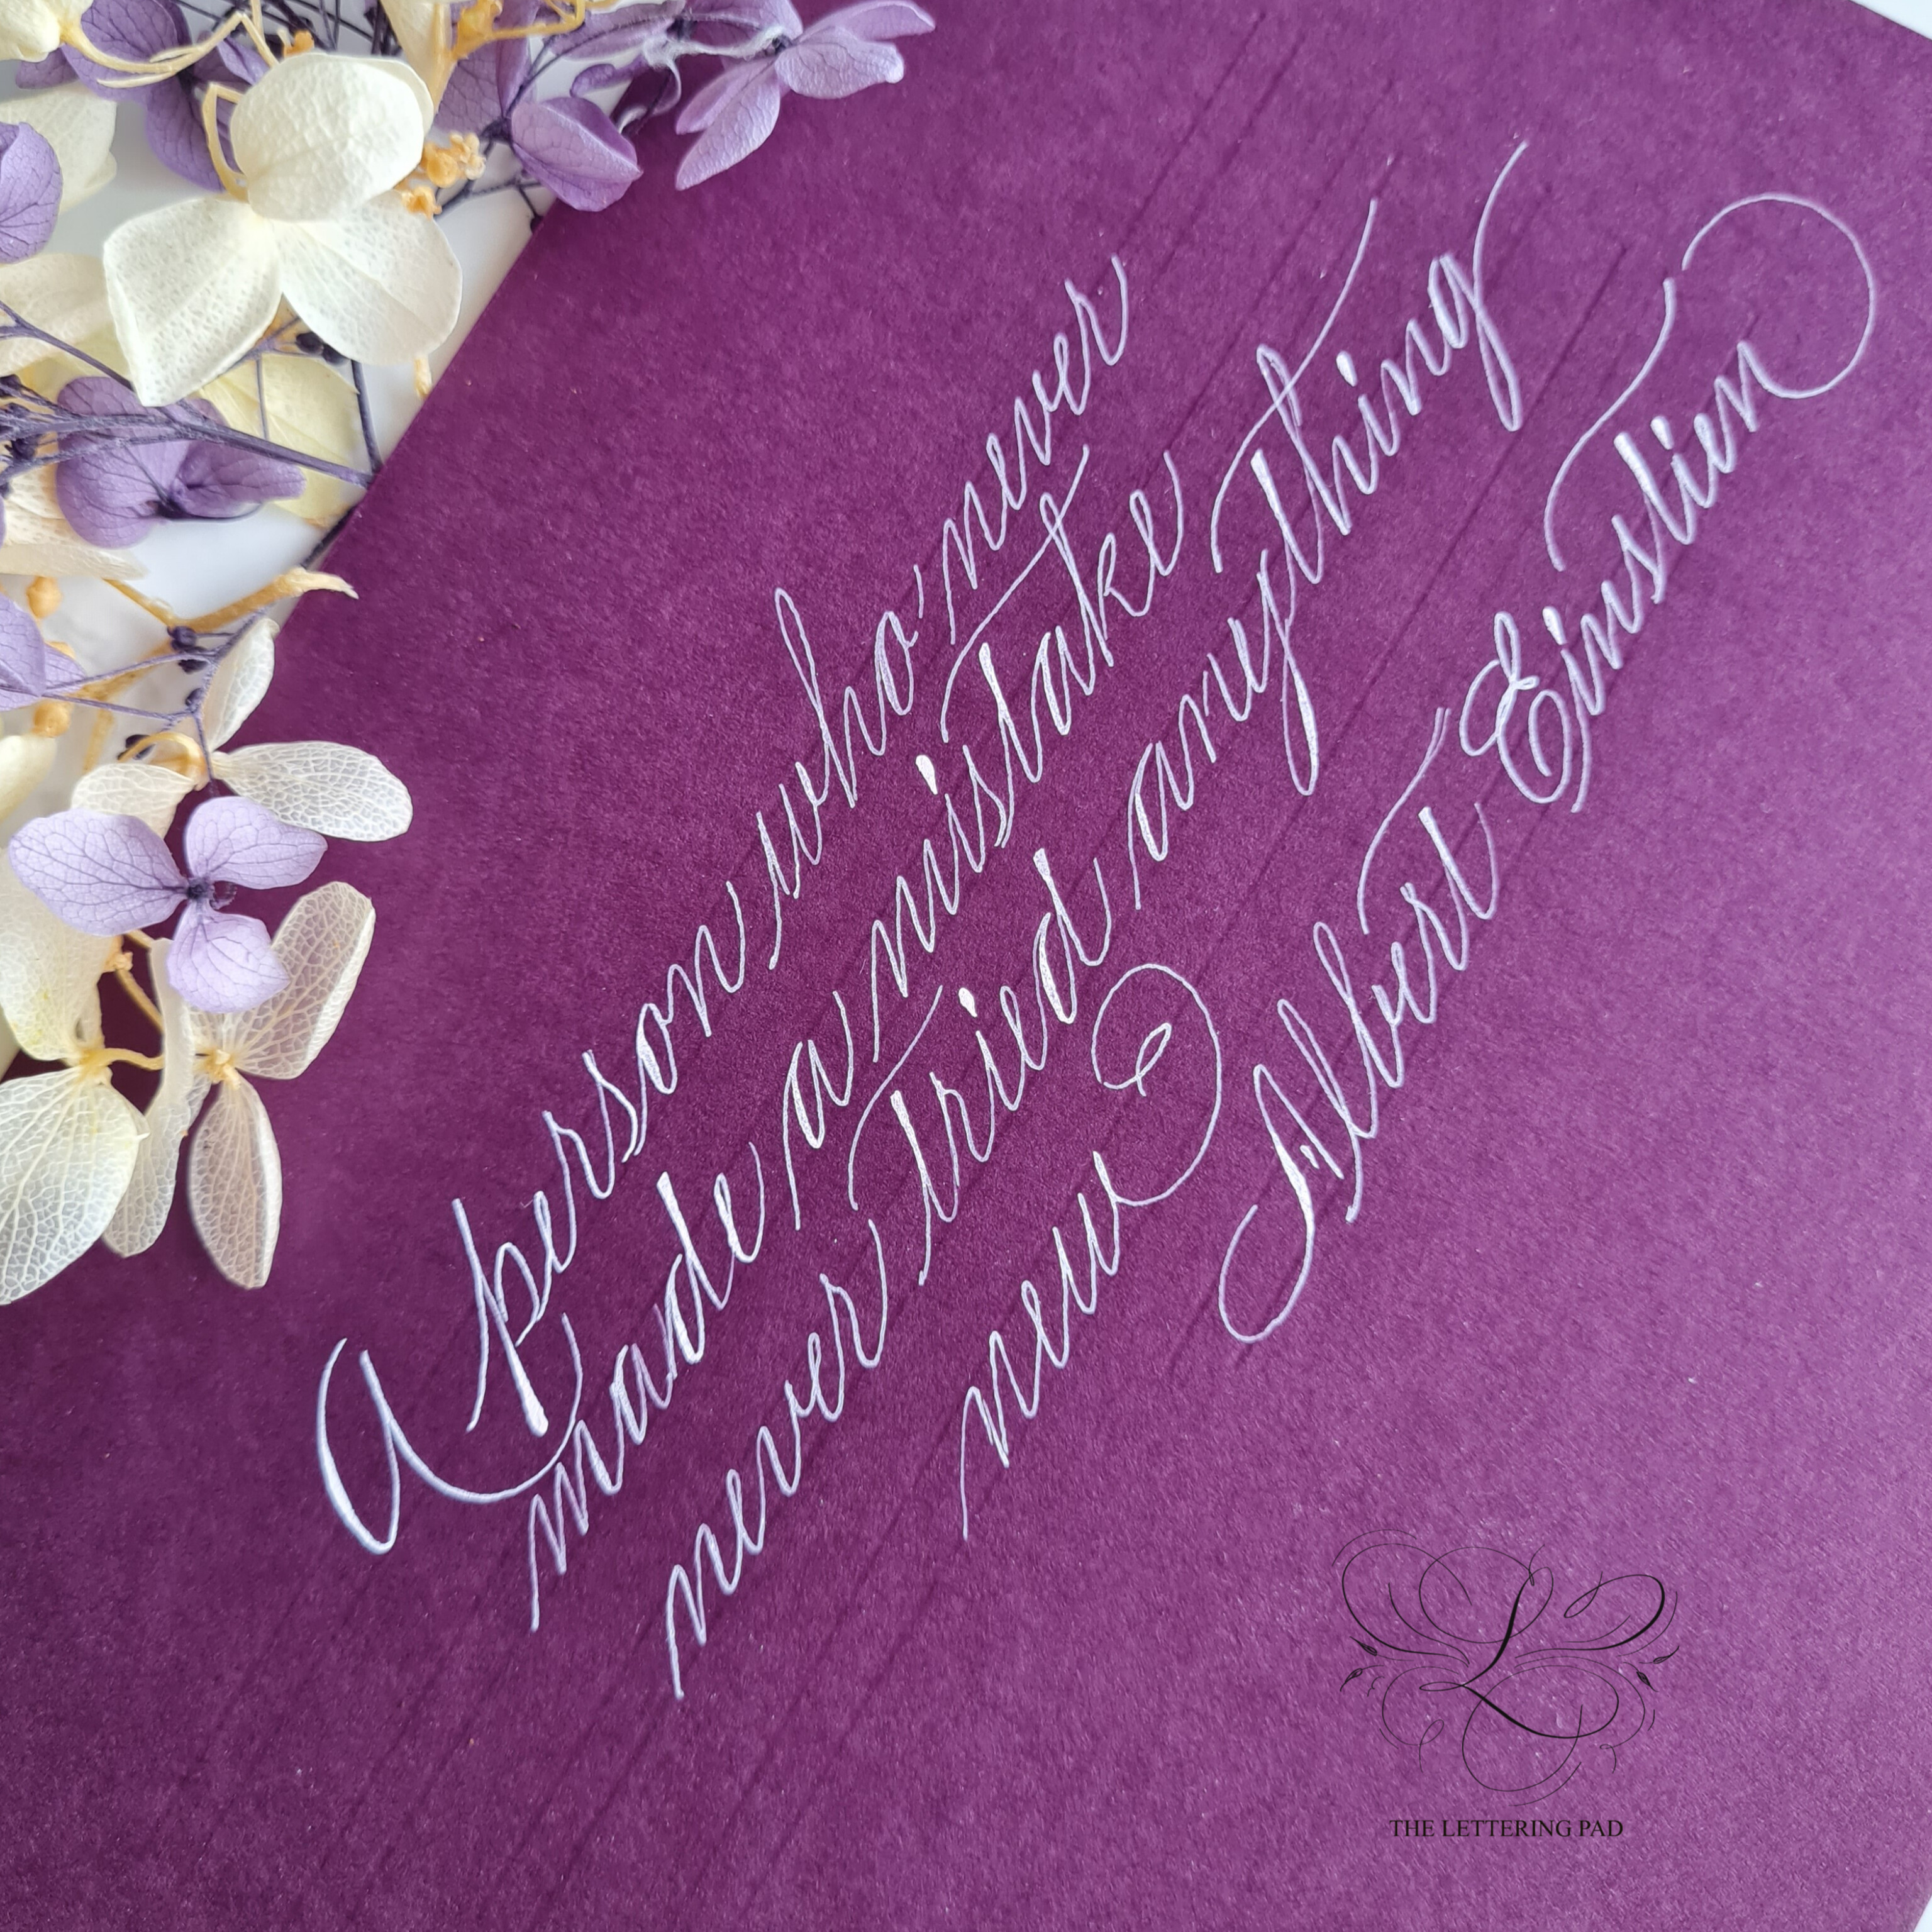 A person who never
made a mistake
never tried anything
new
Albert Einstien
THE LETTERING PAD